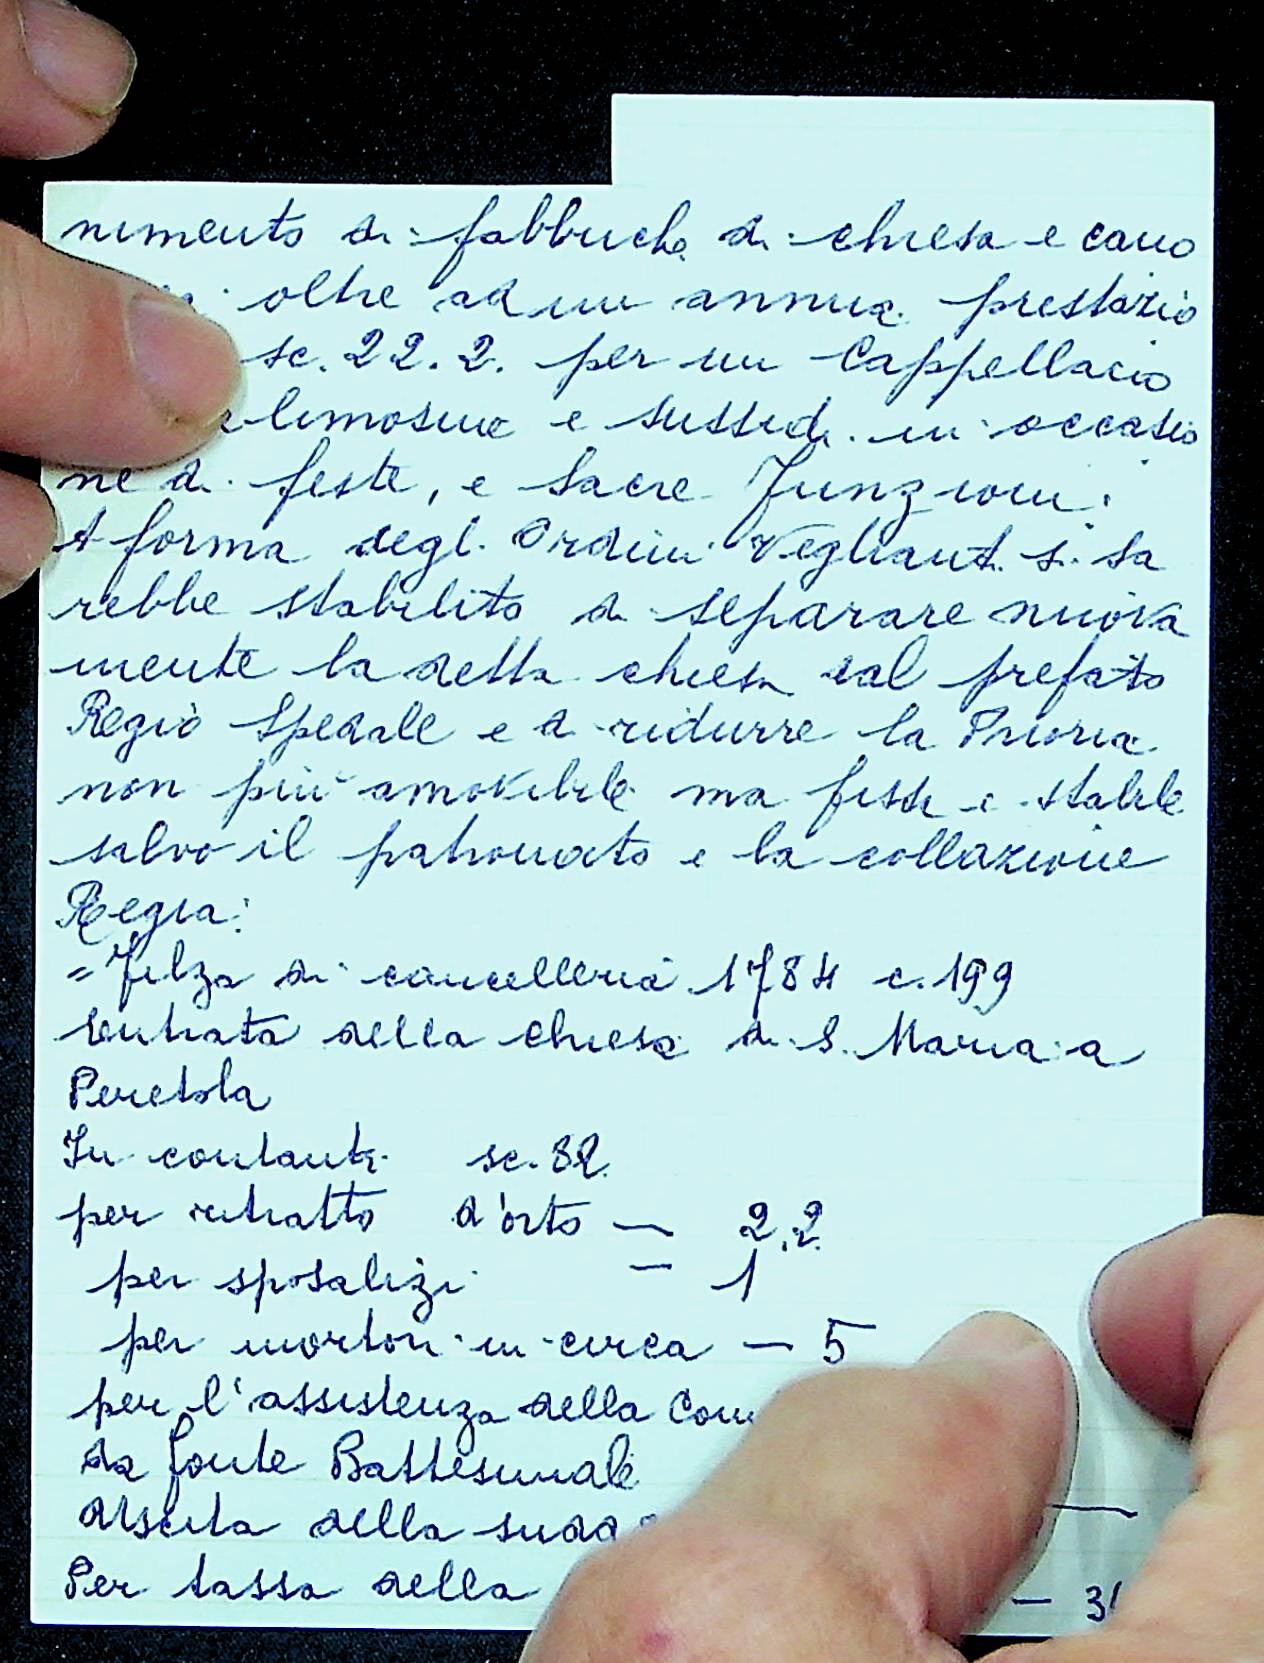 nimento di fabbriche di chiesa e cano
oltre ad un annua prestazio
sc. 22.2. per un Cappellacio
limosine e sussidi in occasio
ne di feste, e sacre Funzioni.
A forma degl. Ordini Veglianti si sa
rebbe stabilito di separare nuova
mente la detta chiesa dal prefato
Regio Spedale e di ridurre la Prioria
non più amovibile ma fissa e stabile
salvo il patronato e la collazione
Regia:
= Filza di cancelleria 1784 c. 199
Entrata della chiesa di S. Maria a
Peretola
In contanti sc. 82
per ritratto d'orto — 2.2
per sposalizi — 1
per mortori in circa — 5
per l'assistenza della
da fonte Battesimale
uscita della
Per tassa della —